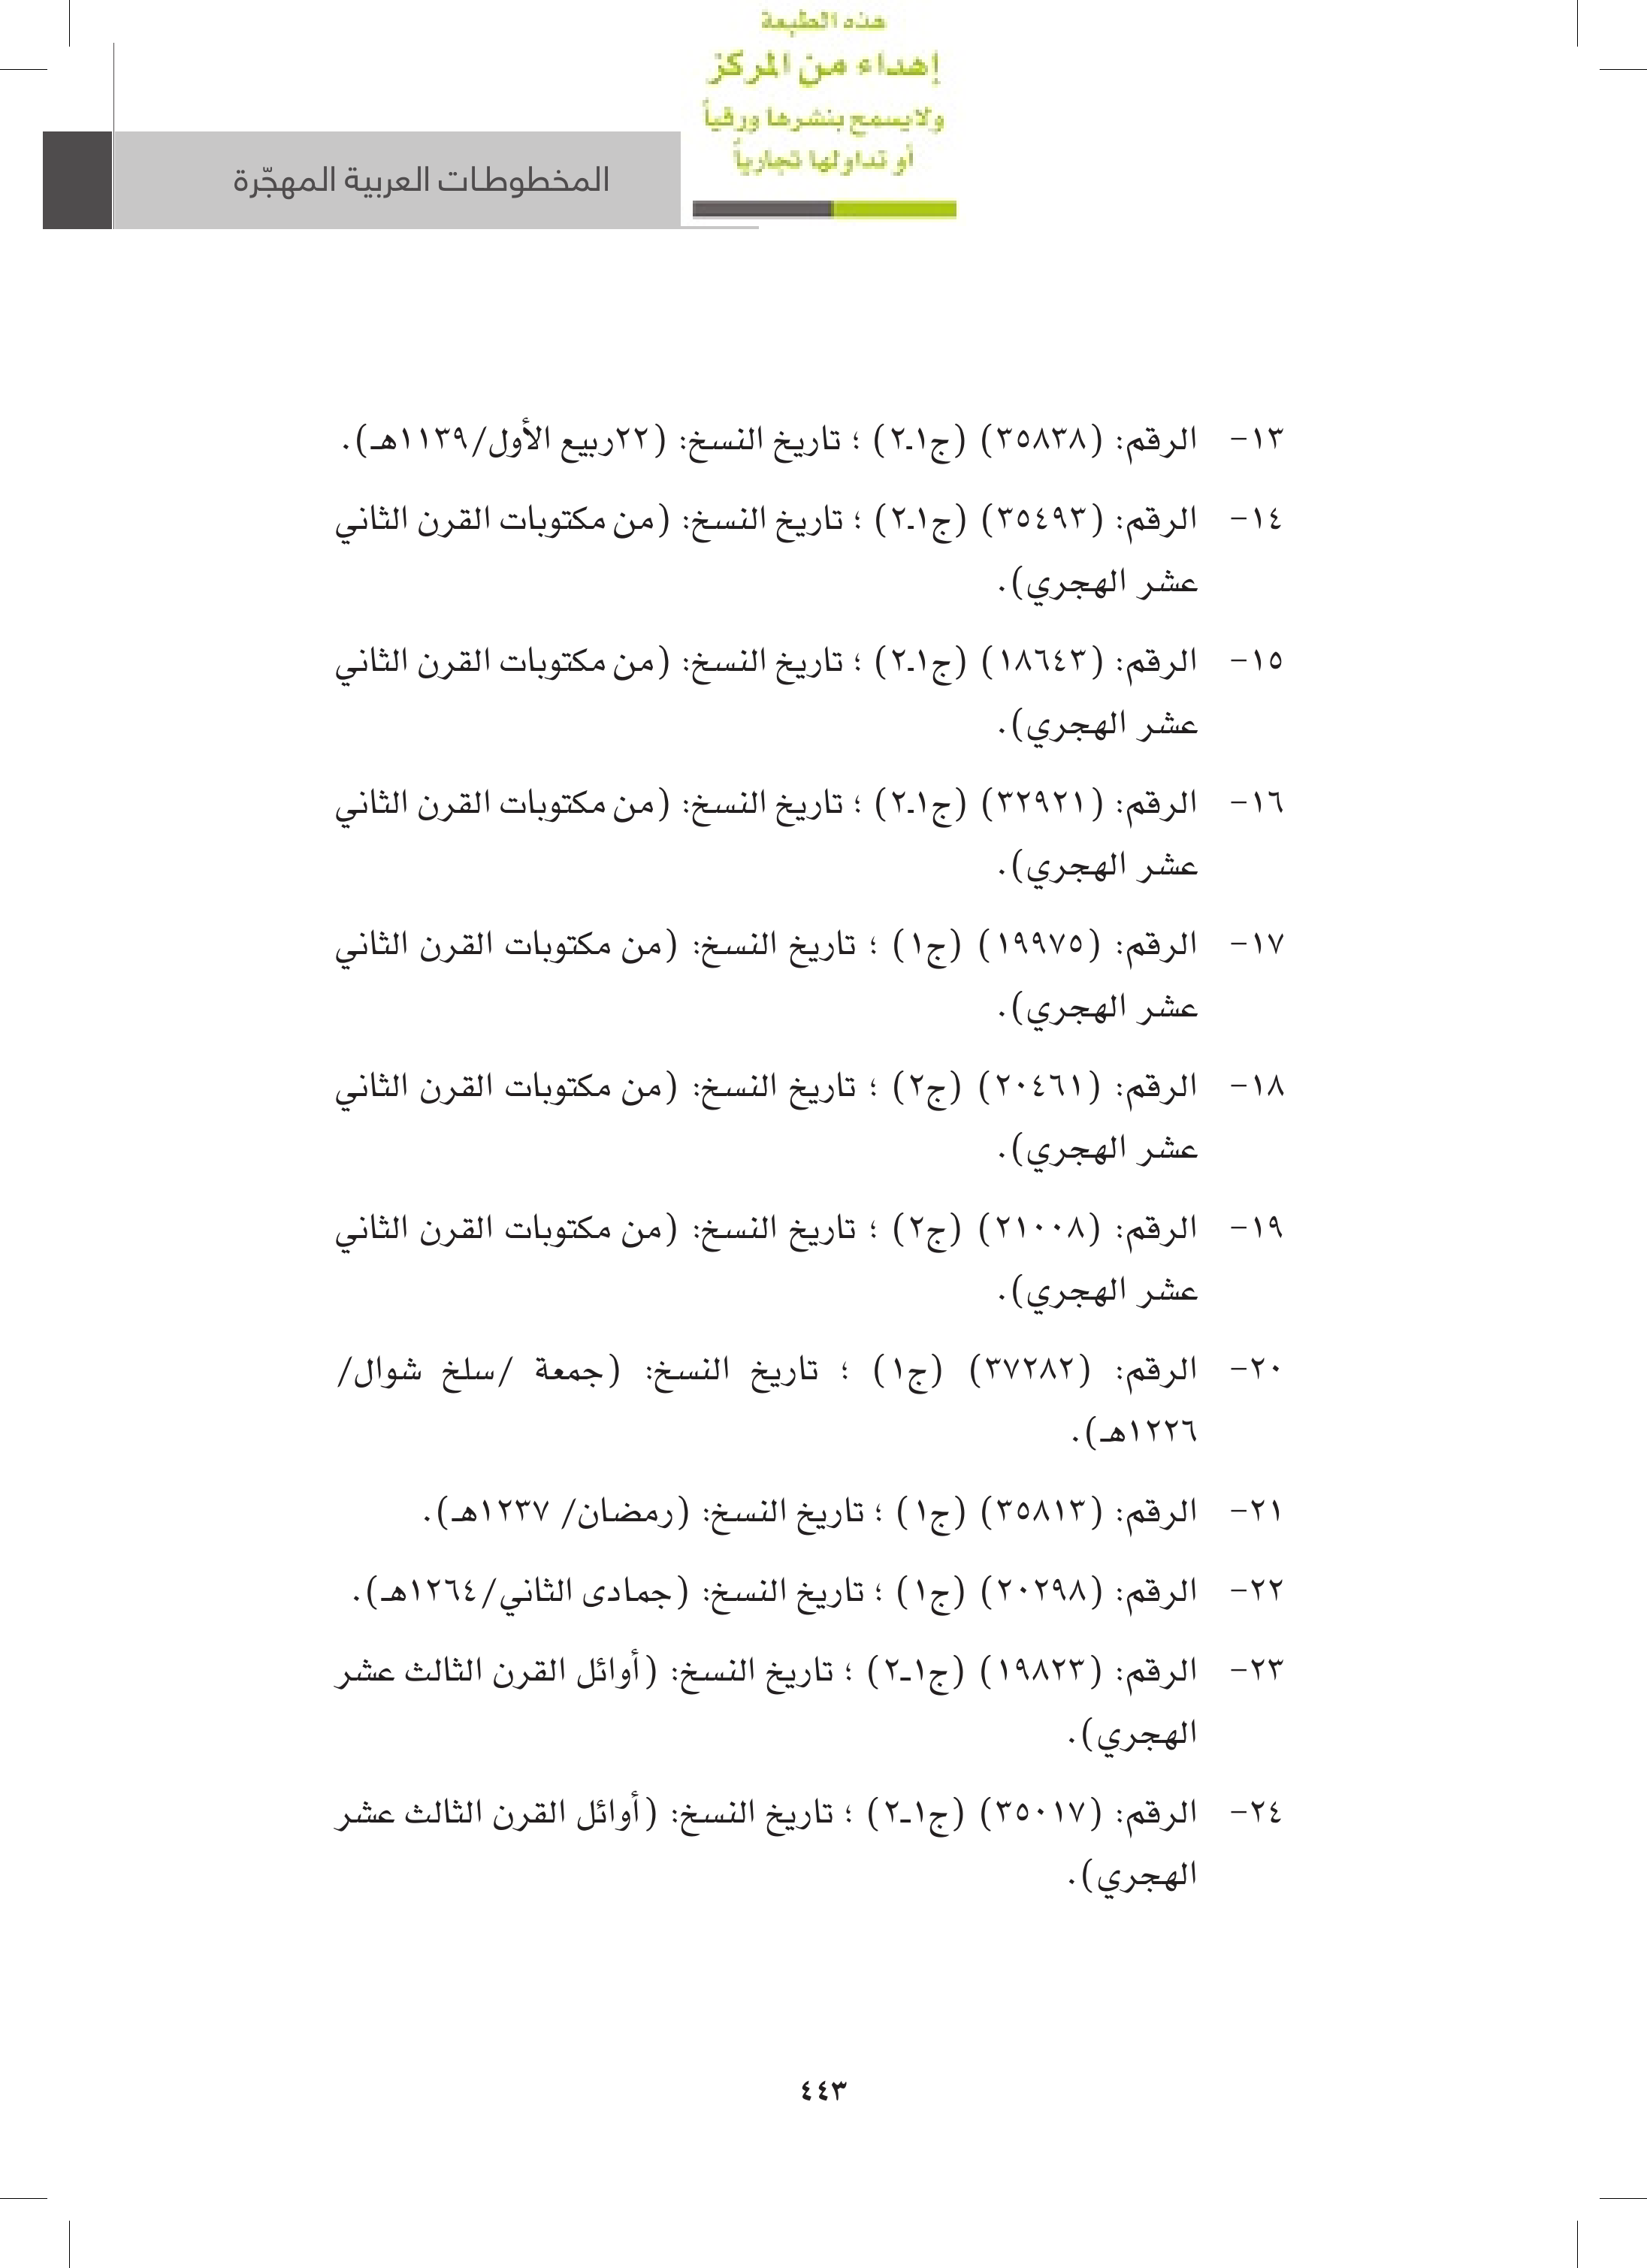 هذه الطبعة
إهداء من المركز
ولايسمح بنشرها ورقياً
أو تداولها تجارياً
المخطوطات العربية المهجّرة
١٣- الرقم: (٣٥٨٣٨) (ج١ـ٢) ؛ تاريخ النسخ: (٢٢ربيع الأول/١١٣٩هـ).
١٤- الرقم: (٣٥٤٩٣) (ج١ـ٢) ؛ تاريخ النسخ: (من مكتوبات القرن الثاني
عشر الهجري).
١٥- الرقم: (١٨٦٤٣) (ج١ـ٢) ؛ تاريخ النسخ: (من مكتوبات القرن الثاني
عشر الهجري).
١٦- الرقم: (٣٢٩٢١) (ج١ـ٢) ؛ تاريخ النسخ: (من مكتوبات القرن الثاني
عشر الهجري).
١٧- الرقم: (١٩٩٧٥) (ج١) ؛ تاريخ النسخ: (من مكتوبات القرن الثاني
عشر الهجري).
١٨- الرقم: (٢٠٤٦١) (ج٢) ؛ تاريخ النسخ: (من مكتوبات القرن الثاني
عشر الهجري).
١٩- الرقم: (٢١٠٠٨) (ج٢) ؛ تاريخ النسخ: (من مكتوبات القرن الثاني
عشر الهجري).
٢٠- الرقم: (٣٧٢٨٢) (ج١) ؛ تاريخ النسخ: (جمعة /سلخ شوال/
١٢٢٦هـ).
٢١- الرقم: (٣٥٨١٣) (ج١) ؛ تاريخ النسخ: (رمضان/ ١٢٣٧هـ).
٢٢- الرقم: (٢٠٢٩٨) (ج١) ؛ تاريخ النسخ: (جمادى الثاني/١٢٦٤هـ).
٢٣- الرقم: (١٩٨٢٣) (ج١ـ٢) ؛ تاريخ النسخ: (أوائل القرن الثالث عشر
الهجري).
٢٤- الرقم: (٣٥٠١٧) (ج١ـ٢) ؛ تاريخ النسخ: (أوائل القرن الثالث عشر
الهجري).
٤٤٣